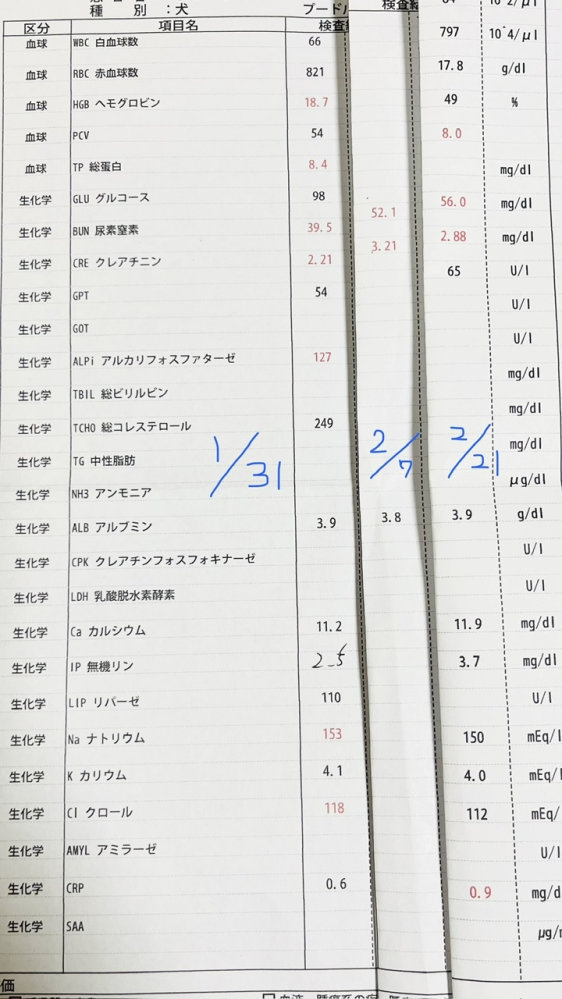 種 別 :犬 プードル 検査結
区分 項目名 検査結 64 10^2/μl
血球 WBC 白血球数 66 797 10^4/μl
血球 RBC 赤血球数 821 17.8 g/dl
血球 HGB ヘモグロビン 18.7 49 %
血球 PCV 54 8.0
血球 TP 総蛋白 8.4 mg/dl
生化学 GLU グルコース 98 52.1 56.0 mg/dl
生化学 BUN 尿素窒素 39.5 3.21 2.88 mg/dl
生化学 CRE クレアチニン 2.21 65 U/l
生化学 GPT 54 U/l
生化学 GOT U/l
生化学 ALPi アルカリフォスファターゼ 127 mg/dl
生化学 TBIL 総ビリルビン mg/dl
生化学 TCHO 総コレステロール 249 mg/dl
1/31 2/7 2/21
生化学 TG 中性脂肪 μg/dl
生化学 NH3 アンモニア
生化学 ALB アルブミン 3.9 3.8 3.9 g/dl
生化学 CPK クレアチンフォスフォキナーゼ U/l
生化学 LDH 乳酸脱水素酵素 U/l
生化学 Ca カルシウム 11.2 11.9 mg/dl
生化学 IP 無機リン 2.5 3.7 mg/dl
生化学 LIP リパーゼ 110 U/l
生化学 Na ナトリウム 153 150 mEq/l
生化学 K カリウム 4.1 4.0 mEq/l
生化学 Cl クロール 118 112 mEq/
生化学 AMYL アミラーゼ U/l
生化学 CRP 0.6 0.9 mg/d
生化学 SAA μg/m
価